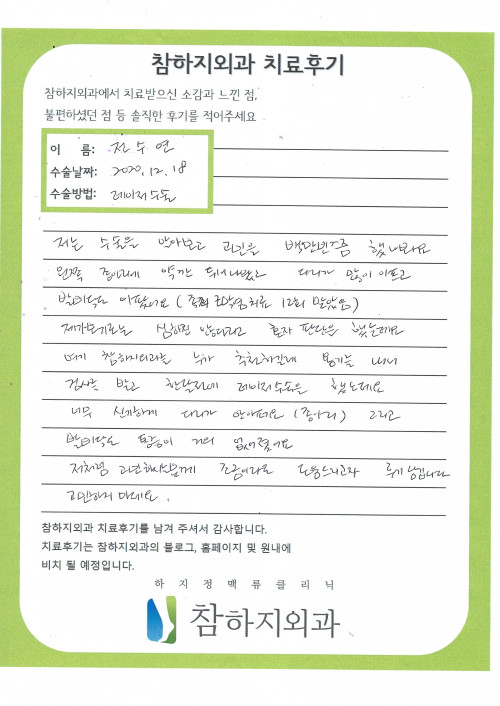 참하지외과 치료후기
참하지외과에서 치료받으신 소감과 느낀 점,
불편하셨던 점 등 솔직한 후기를 적어주세요
이 름: 전수연
수술날짜: 2020.12.18
수술방법: 레이저수술
저는 수술을 알아보고 고민을 백만번쯤 했나봐요
왼쪽 종아리에 약간 튀어나왔고 다리가 많이 아프고
발바닥도 아팠어요 (족저근막염치료 12회 받았음)
제가보기로는 심하진 않다라고 혼자 판단을 했는데요
여기 참하지외과를 누가 추천하길래 용기를 내서
검사를 받고 한달뒤에 레이저수술을 했는데요
너무 신기하게 다리가 안아파요 (종아리) 그리고
발바닥도 통증이 거의 없어졌어요
저처럼 고민하시는분께 조금이라도 도움드리고자 후기 남깁니다
고민하지 마세요.
참하지외과 치료후기를 남겨 주셔서 감사합니다.
치료후기는 참하지외과의 블로그, 홈페이지 및 원내에
비치 될 예정입니다.
하지정맥류클리닉
참하지외과